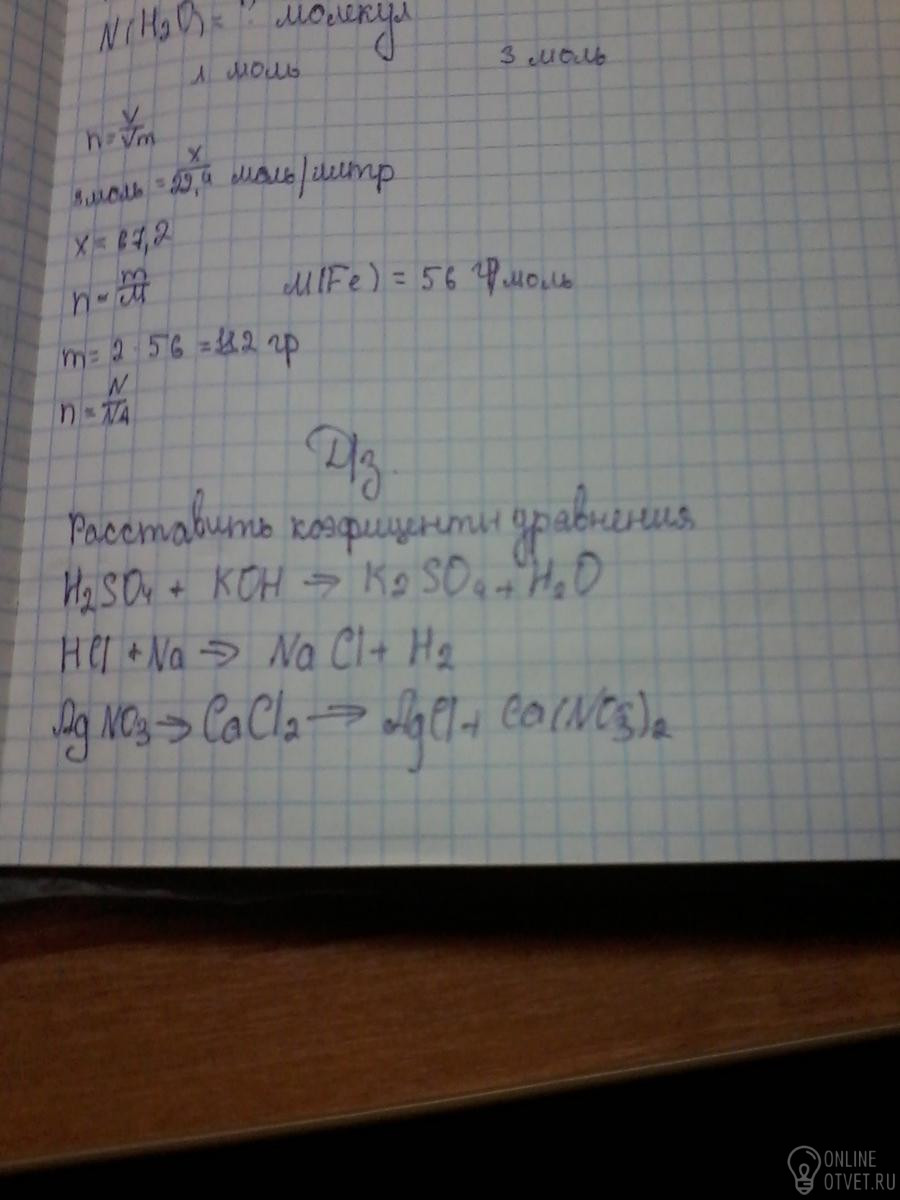 N(H₂O) = ? молекул
1 моль 3 моль
n = V/Vm
3 моль = x/22,4 моль/литр
x = 67,2
n = m/M M(Fe) = 56 гр/моль
m = 2 · 56 = 112 гр
n = N/NA
Д/з.
Расставить коэфиценты уравнения
H₂SO₄ + KOH → K₂SO₄ + H₂O
HCl + Na → NaCl + H₂
AgNO₃ → CaCl₂ → AgCl + Ca(NO₃)₂
ONLINE
OTVET.RU